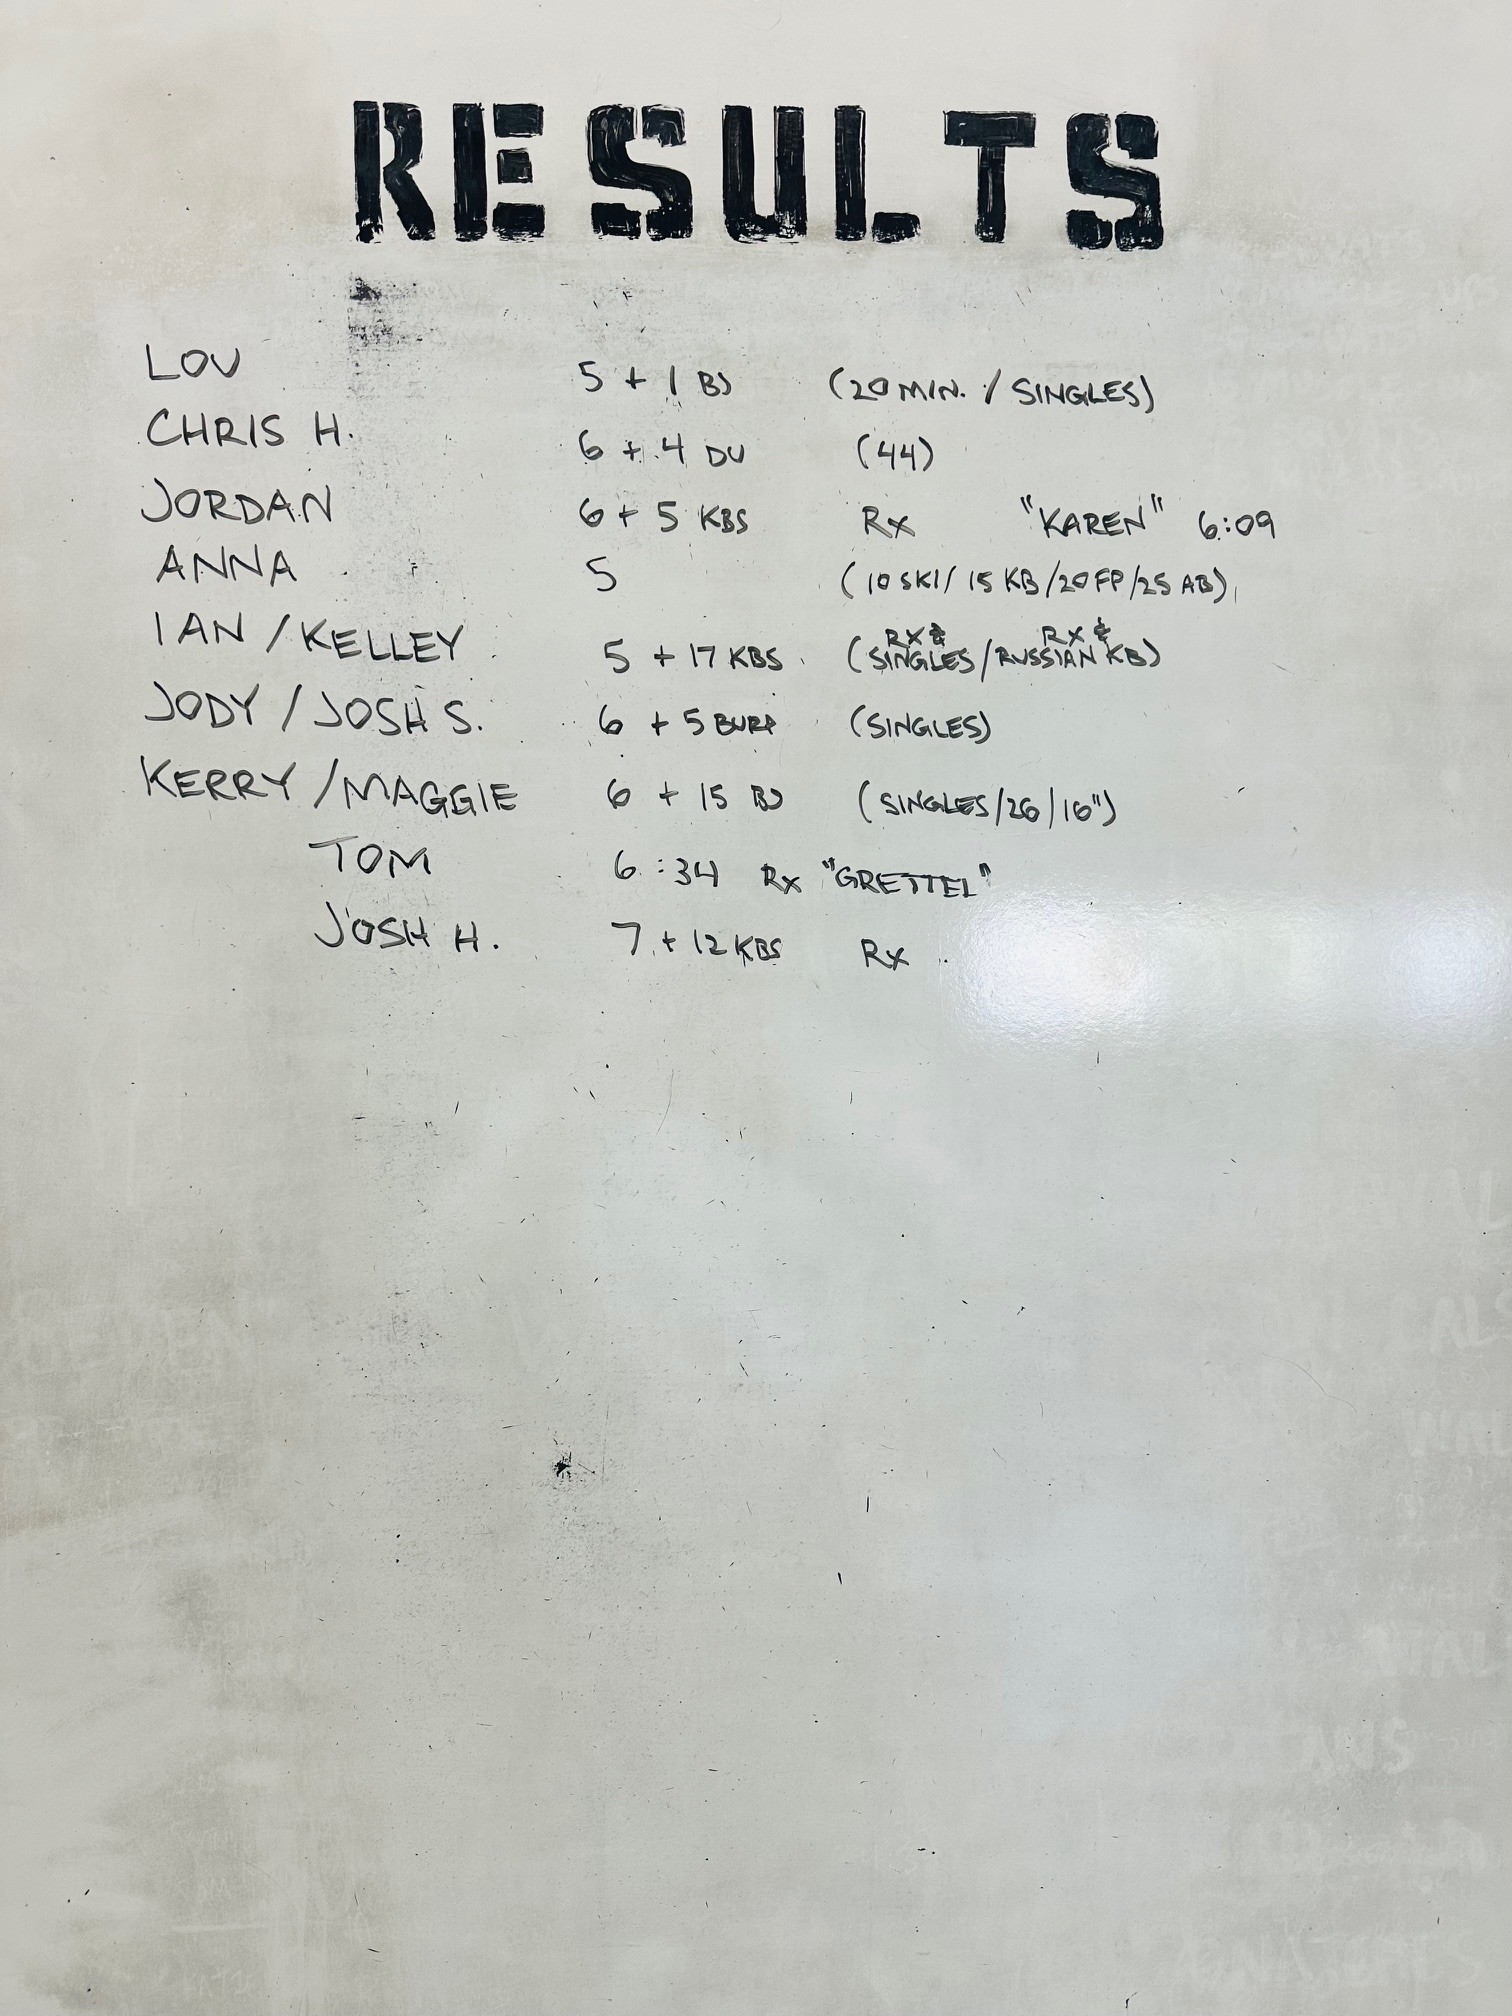 RESULTS
LOU 5 + 1 BJ (20 MIN. / SINGLES)
CHRIS H. 6 + 4 DU (44)
JORDAN 6 + 5 KBS Rx "KAREN" 6:09
ANNA 5 (10 SKI / 15 KB / 20 FP / 25 AB)
IAN / KELLEY 5 + 17 KBS (RX & SINGLES / RX & RUSSIAN KB)
JODY / JOSH S. 6 + 5 BURP (SINGLES)
KERRY / MAGGIE 6 + 15 BJ (SINGLES/26/16")
TOM 6:34 Rx "GRETTEL"
JOSH H. 7 + 12 KBS Rx